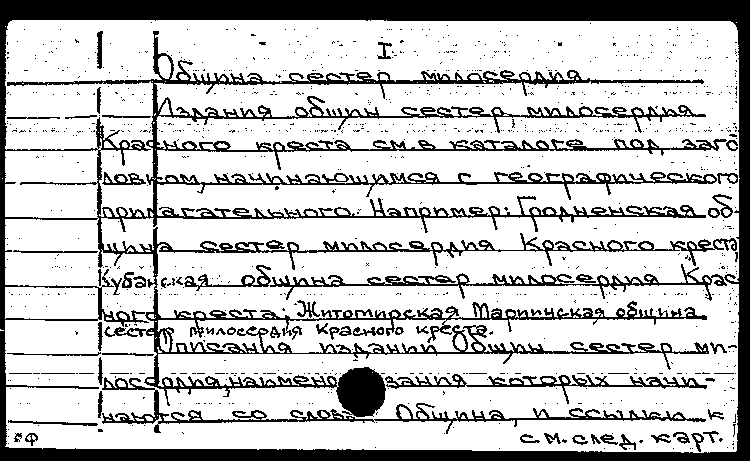 I
Община сестер милосердия.
Издания общин сестер милосердия
Красного креста см. в каталоге под заго-
ловком, начинающимся с географического
прилагательного. Например: Гродненская об-
щина сестер милосердия Красного креста,
Кубанская община сестер милосердия Крас-
ного креста, Житомирская Мариинская община
сестер милосердия Красного креста.
Описания изданий Общин сестер ми-
лосердия, наименования которых начи-
наются со слова Община, и ссылки к
см. след. карт.